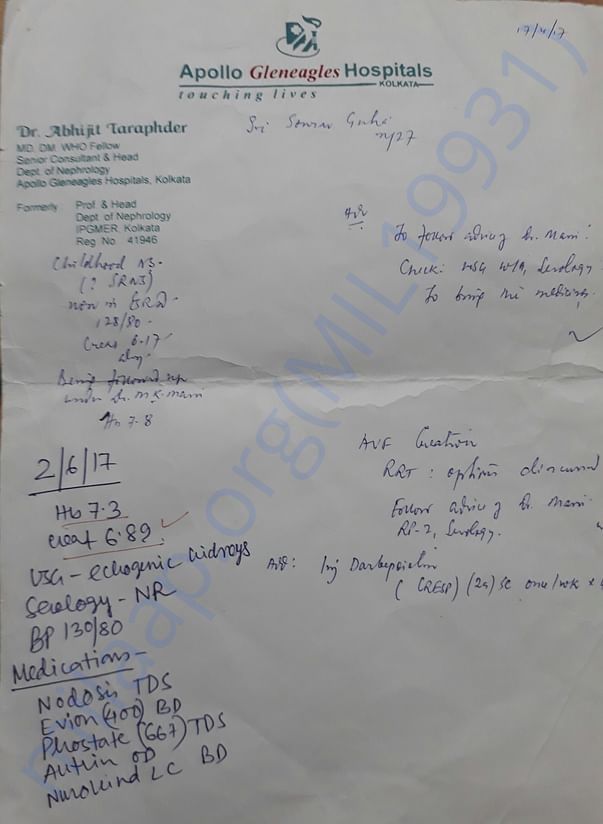 17/4/17
Apollo Gleneagles Hospitals
KOLKATA
touching lives
Dr. Abhijit Taraphder
MD. DM. WHO Fellow
Senior Consultant & Head
Dept. of Nephrology
Apollo Gleneagles Hospitals, Kolkata
Formerly Prof. & Head
Dept of Nephrology
IPGMER. Kolkata
Reg No 41946
Sri Sourav Guha
M/27
Childhood NS.
(? SRNS)
now in ESRD.
128/80
Creat 6.17
Being followed up
under Dr. M.K. Mani
Hb 7.8
Adv
To follow advice Dr. Mani.
Check: USG W/A, Serology
To bring the medicines.
2/6/17
Hb 7.3
Creat 6.89
USG - echogenic kidneys
Serology - NR
BP 130/80
Medications -
Nodosis TDS
Evion (400) BD
Phostate (667) TDS
Autrin OD
Nurokind LC BD
AVF Creation
RRT: options discussed
Follow advice of Dr. Mani
RP-2, Serology.
Adv: Inj Darbepoietin
(CRESP) (25) SC once/wk x
milaap.org(MIL19931)